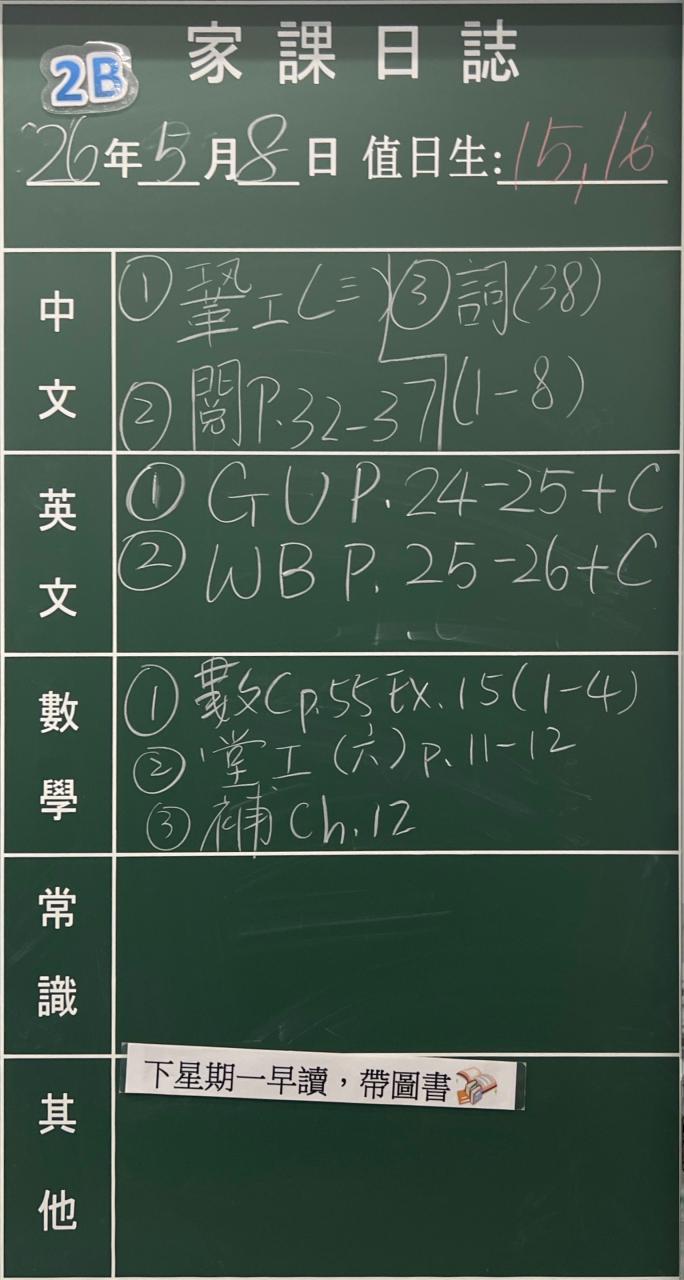 家課日誌
2B
26年5月8日 值日生:15,16
中文
①鞏工(三) ③詞(38)
②閱P.32-37 (1-8)
英文
① GU P.24-25+C
② WB P.25-26+C
數學
①數C p.55 Ex.15(1-4)
②堂工(六)p.11-12
③補Ch.12
常識
其他
下星期一早讀，帶圖書